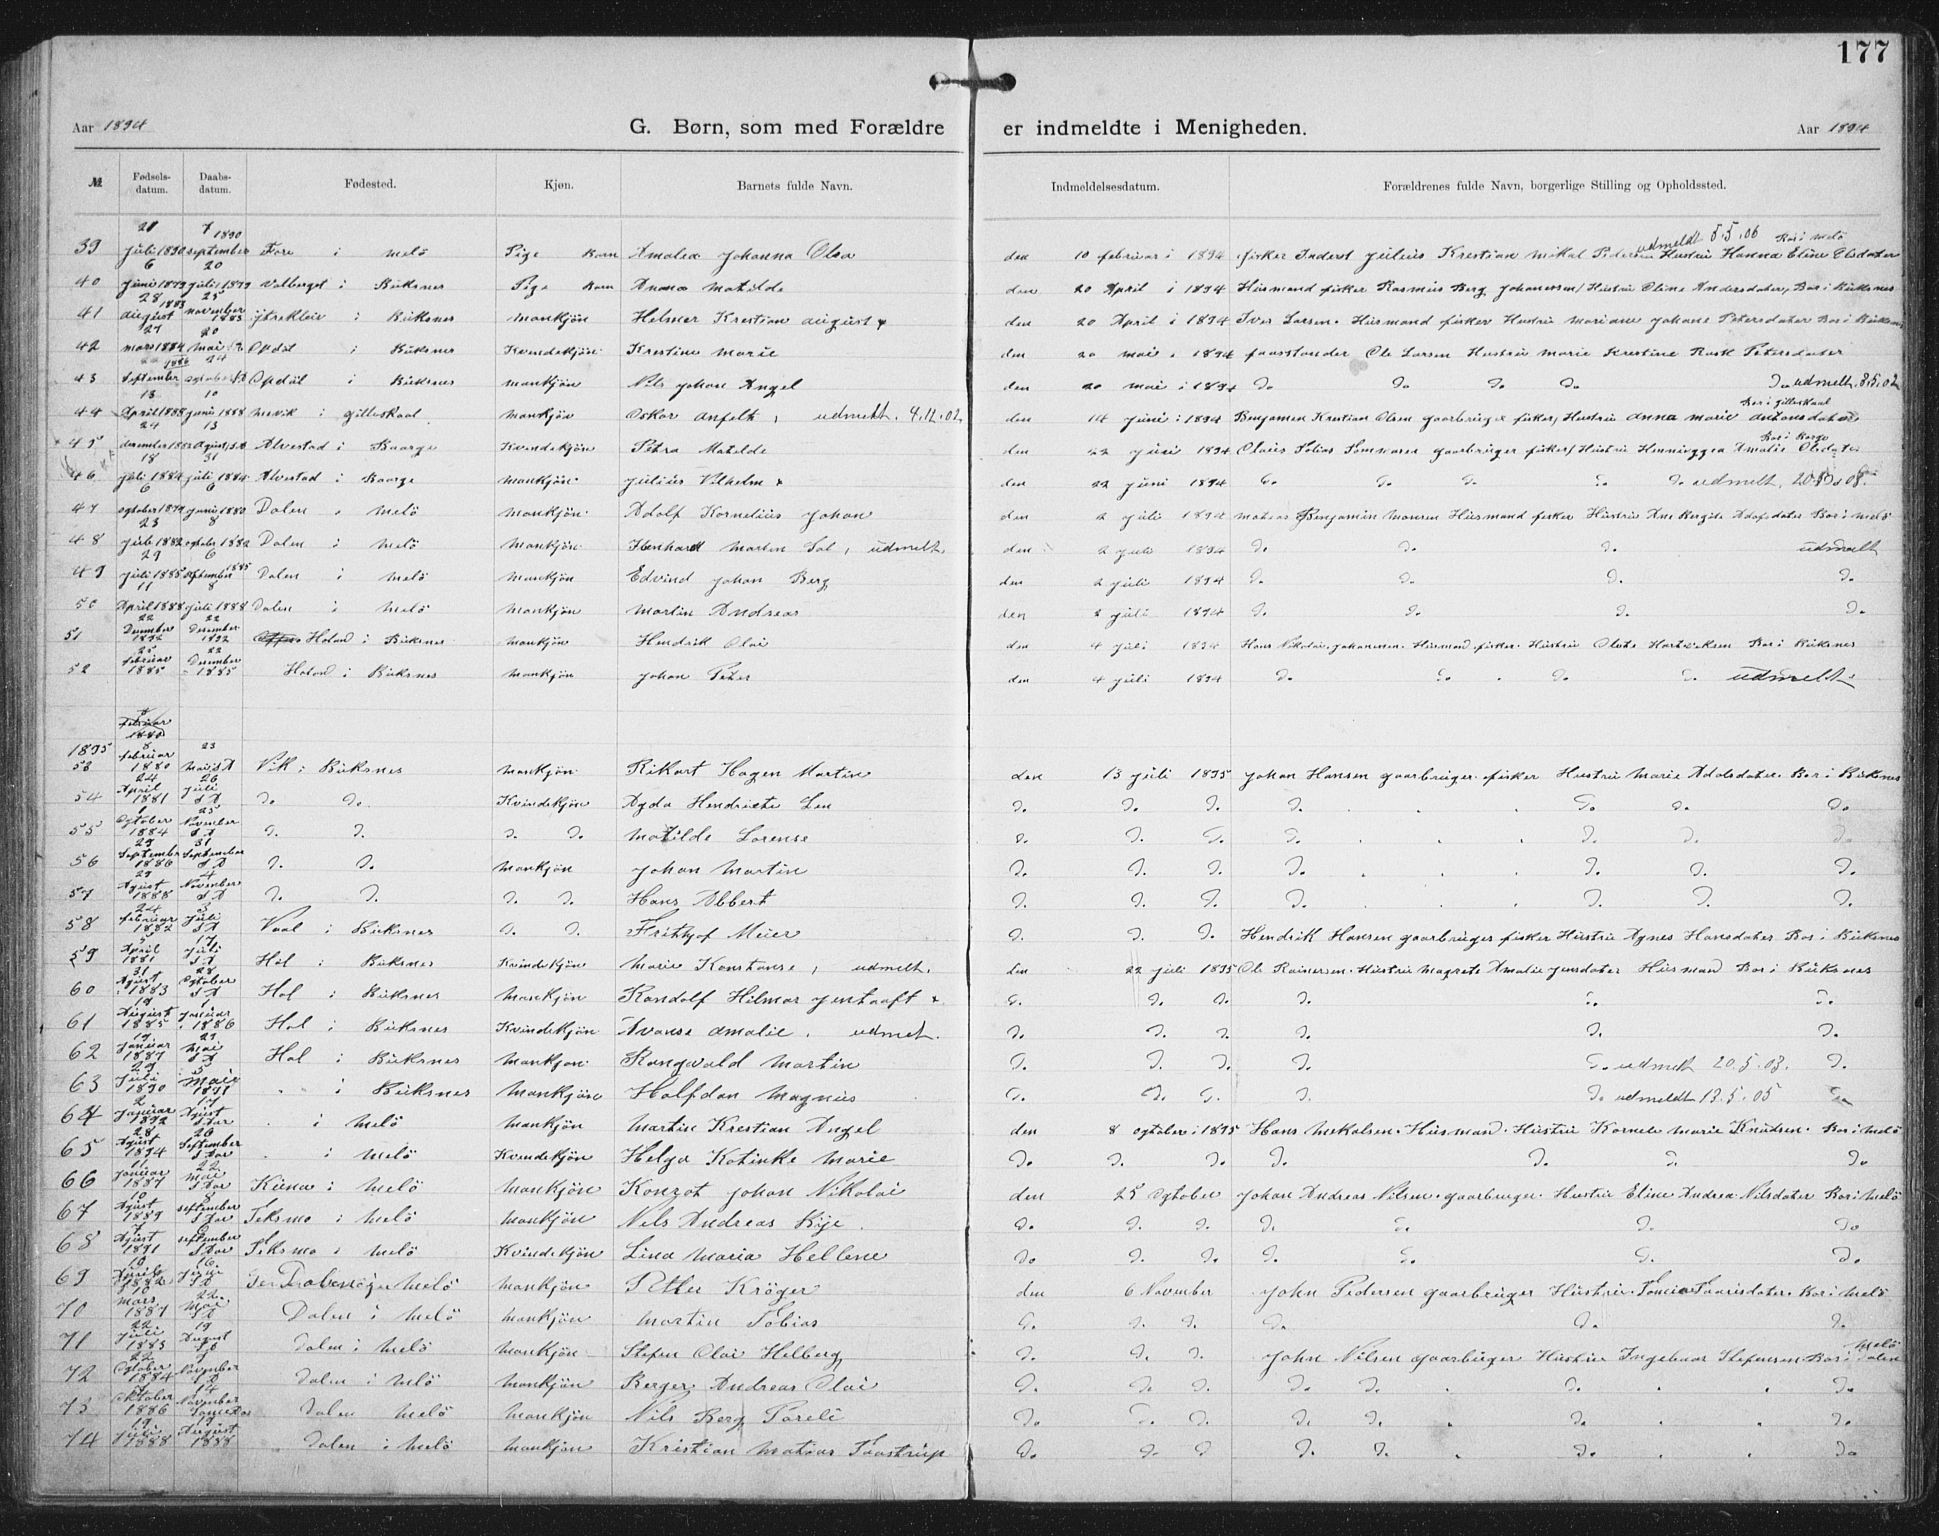 177
Aar 1894 G. Børn, som med Forældre er indmeldte i Menigheden. Aar 1894
№ Fødsels-datum. Daabs-datum. Fødested. Kjøn. Barnets fulde Navn. Indmeldelsesdatum. Forældrenes fulde Navn, borgerlige Stilling og Opholdssted.
39 juli 1890 7 september 1890 Fore i melö Pige Barn Amalea Johanna Olea den 10 februar i 1894 fisker Julius Krestian mikal Pedersen Hustru Hanna Eline Olsdater udmeldt 5.5.06 Bor i melö
40 6 juni 1879 20 juli 1879 i Büksnes Pige Barn Anna Matilde den 20 April i 1894 Husmand fisker Rasmus Berg Johanesen Hustru Oline Andersdater, Bor i Büksnes
41 28 august 1883 25 november 1883 i Büksnes mankjön Helmer Krestian august den 20 April i 1894 Iver Larsen Husmand fisker Hustru mariane johane Petersdater Bor i Büksnes
42 27 mars 1884 20 mai Opdöl i Büksnes Kvindekjön Krestine Marie den 20 mai i 1894 Ole Larsen Hustru marie Krestine Rask Petersdater
43 september 1886 24 Opdöl i Büksnes mankjön Nils Johan Angel den 20 mai i 1894 Do Do Do Do Do udmelt 3.5.02
44 13 April 1888 10 juni 1888 mevik i gilleskaal mankjön Oskar anfelt, udmeldt. 4.12.02 den 14 juni i 1894 Benjamin Krestian Olsen gaarbruger fisker, Hustru anna marie antonsdater Bor i gilleskaal
45 24 desember 13 Agust Alvestad i Baarge Kvindekjön Petra Matilde den 22 juni 1894 Olaus Tobias gaarbruger fisker Hustru Amalie Olsdater Bor i Borge
46 18 juli 1884 31 juli 1884 Alvestad i Baarge mankjön julius Vilhelm den 22 juni 1894 Do Do Do Do Do udmelt, 20.10.08.
47 6 ogtober 1879 6 juni 1880 Dalen i melö mankjön Adolf Kornelius Johan den 2 juli 1894 matias Benjamin Husmand fisker Hustru Ane Bergite Adofsdater Bor i melö
48 23 1882 8 ogtober 1882 Dalen i melö mankjön Martin Sal, udmelt. den 2 juli 1894 Do Do Do udmelt
49 29 juli 1885 6 september 1885 Dalen i melö mankjön Edvind Johan Berg den 2 juli 1894 Do Do Do Do
50 11 April 1888 8 juli 1888 Dalen i melö mankjön Martin Andreas den 2 juli 1894 Do Do Do Do
51 22 Desember 1892 22 Desember 1892 Holand i Büksnes mankjön Hendrik Olai den 4 juli 1894 Hans Nikolai johanesen Husmand fisker Hustru Olete Hartviksen Bor i Büksnes
52 25 februar 1885 22 Desember 1885 Holand i Büksnes mankjön Johan Peter den 4 juli 1894 Do Do Do Do udmelt.
1895
53 8 februar 1880 23 mai S A Vik i Büksnes mankjön Rikart Hagen Martin den 13 juli 1895 Johan Hansen gaarbruger fisker Hustru Marie Adolsdater Bor i Büksnes
54 24 April 1881 26 juli S A Do Do Kvindekjön Agda Hendriete Do Do Do Do Do Do Do
55 1 Ogtober 1884 25 November S A Do Do Do Do Matilde Lorense Do Do Do Do Do Do Do
56 29 September 1886 31 September S A Do Do mankjön Johan Martin Do Do Do Do Do Do Do
57 29 Agust 1888 4 November S A Do Do Do Do Hans Albert Do Do Do Do Do Do Do
58 24 februar 1882 3 juli S A Vaal i Büksnes Do Do Frithjof Meier Do Do Do Hendrik Hansen gaarbruger fisker Hustru Agnes Hansdater Bor i Büksnes
59 5 April 1881 17 juli S A Hol i Büksnes Kvindekjön Marie Konstanse, udmelt. den 22 juli 1895 Ole Rainersen Hustru Magrete Amalie jensdater Husmand Bor i Büksnes
60 31 Agust 1883 28 Ogtober S A Hol i Büksnes Mankjön Randolf Hilmar Do Do Do Do Do Do
61 19 August 1885 1 januar 1886 Hol i Büksnes Kvindekjön amalie. udmelt. Do Do Do Do Do Do
62 19 januar 1887 29 mai S A Hol i Büksnes Mankjön Rangvald Martin Do Do Do Do Do udmelt 20.5.03. Do
63 29 juli 1890 3 mai 1891 i Büksnes Mankjön Halfdan Magnus Do Do Do Do Do udmeldt 13.5.05 Do
64 2 januar 1892 17 Agust S aar i melö Mankjön Martin Krestian Angel den 8 ogtober i 1895 Hans Mekalsen Husmand Hustru Kornele Marie Knudsen Bor i melö
65 28 Agust 1894 26 September S aar i melö Kvindekjön Helga Katinke Marie Do Do Do Do Do Do Do
66 11 januar 1887 22 mai S aar Kuna i melö Mankjön Konrat Johan Nikolai den 25 Ogtober Johan Andreas Nilsen gaarbruger Hustru Eline Andrea Nilsdater Bor i melö
67 10 Agust 1889 8 september S aar Seksmo i melö Mankjön Nils Andreas Kye. Do Do Do Do Do Do Do
68 Agust 1891 6 september S aar Seksmo i melö Kvindekjön Lina Maria Hellene Do Do Do Do Do Do Do
69 April 1882 16 S A i melö Mankjön Petter Kröger den 6 November John Pedersen gaarbruger Hustru Bor i melö
70 10 mars 1887 22 mai S A Dalen i melö Mankjön Martin Tobias Do Do Do Do Do Do
71 22 juli 1883 19 August S A Dalen i melö Mankjön Stefen Olai Helberg Do Do Do John Nilsen gaarbruger Hustru Ingebaar Stefensen Bor i Dalen melö
72 22 Ogtober 1884 9 November S A Dalen i melö Mankjön Berger Andreas Olai Do Do Do Do Do Do Do
73 Oktober 1886 14 November Dalen melö Mankjön Nils Berg Do Do Do Do Do Do Do
74 19 juli 1888 19 August 1888 Dalen i melö Mankjön Kristian Matias Taastrup Do Do Do Do Do Do Do